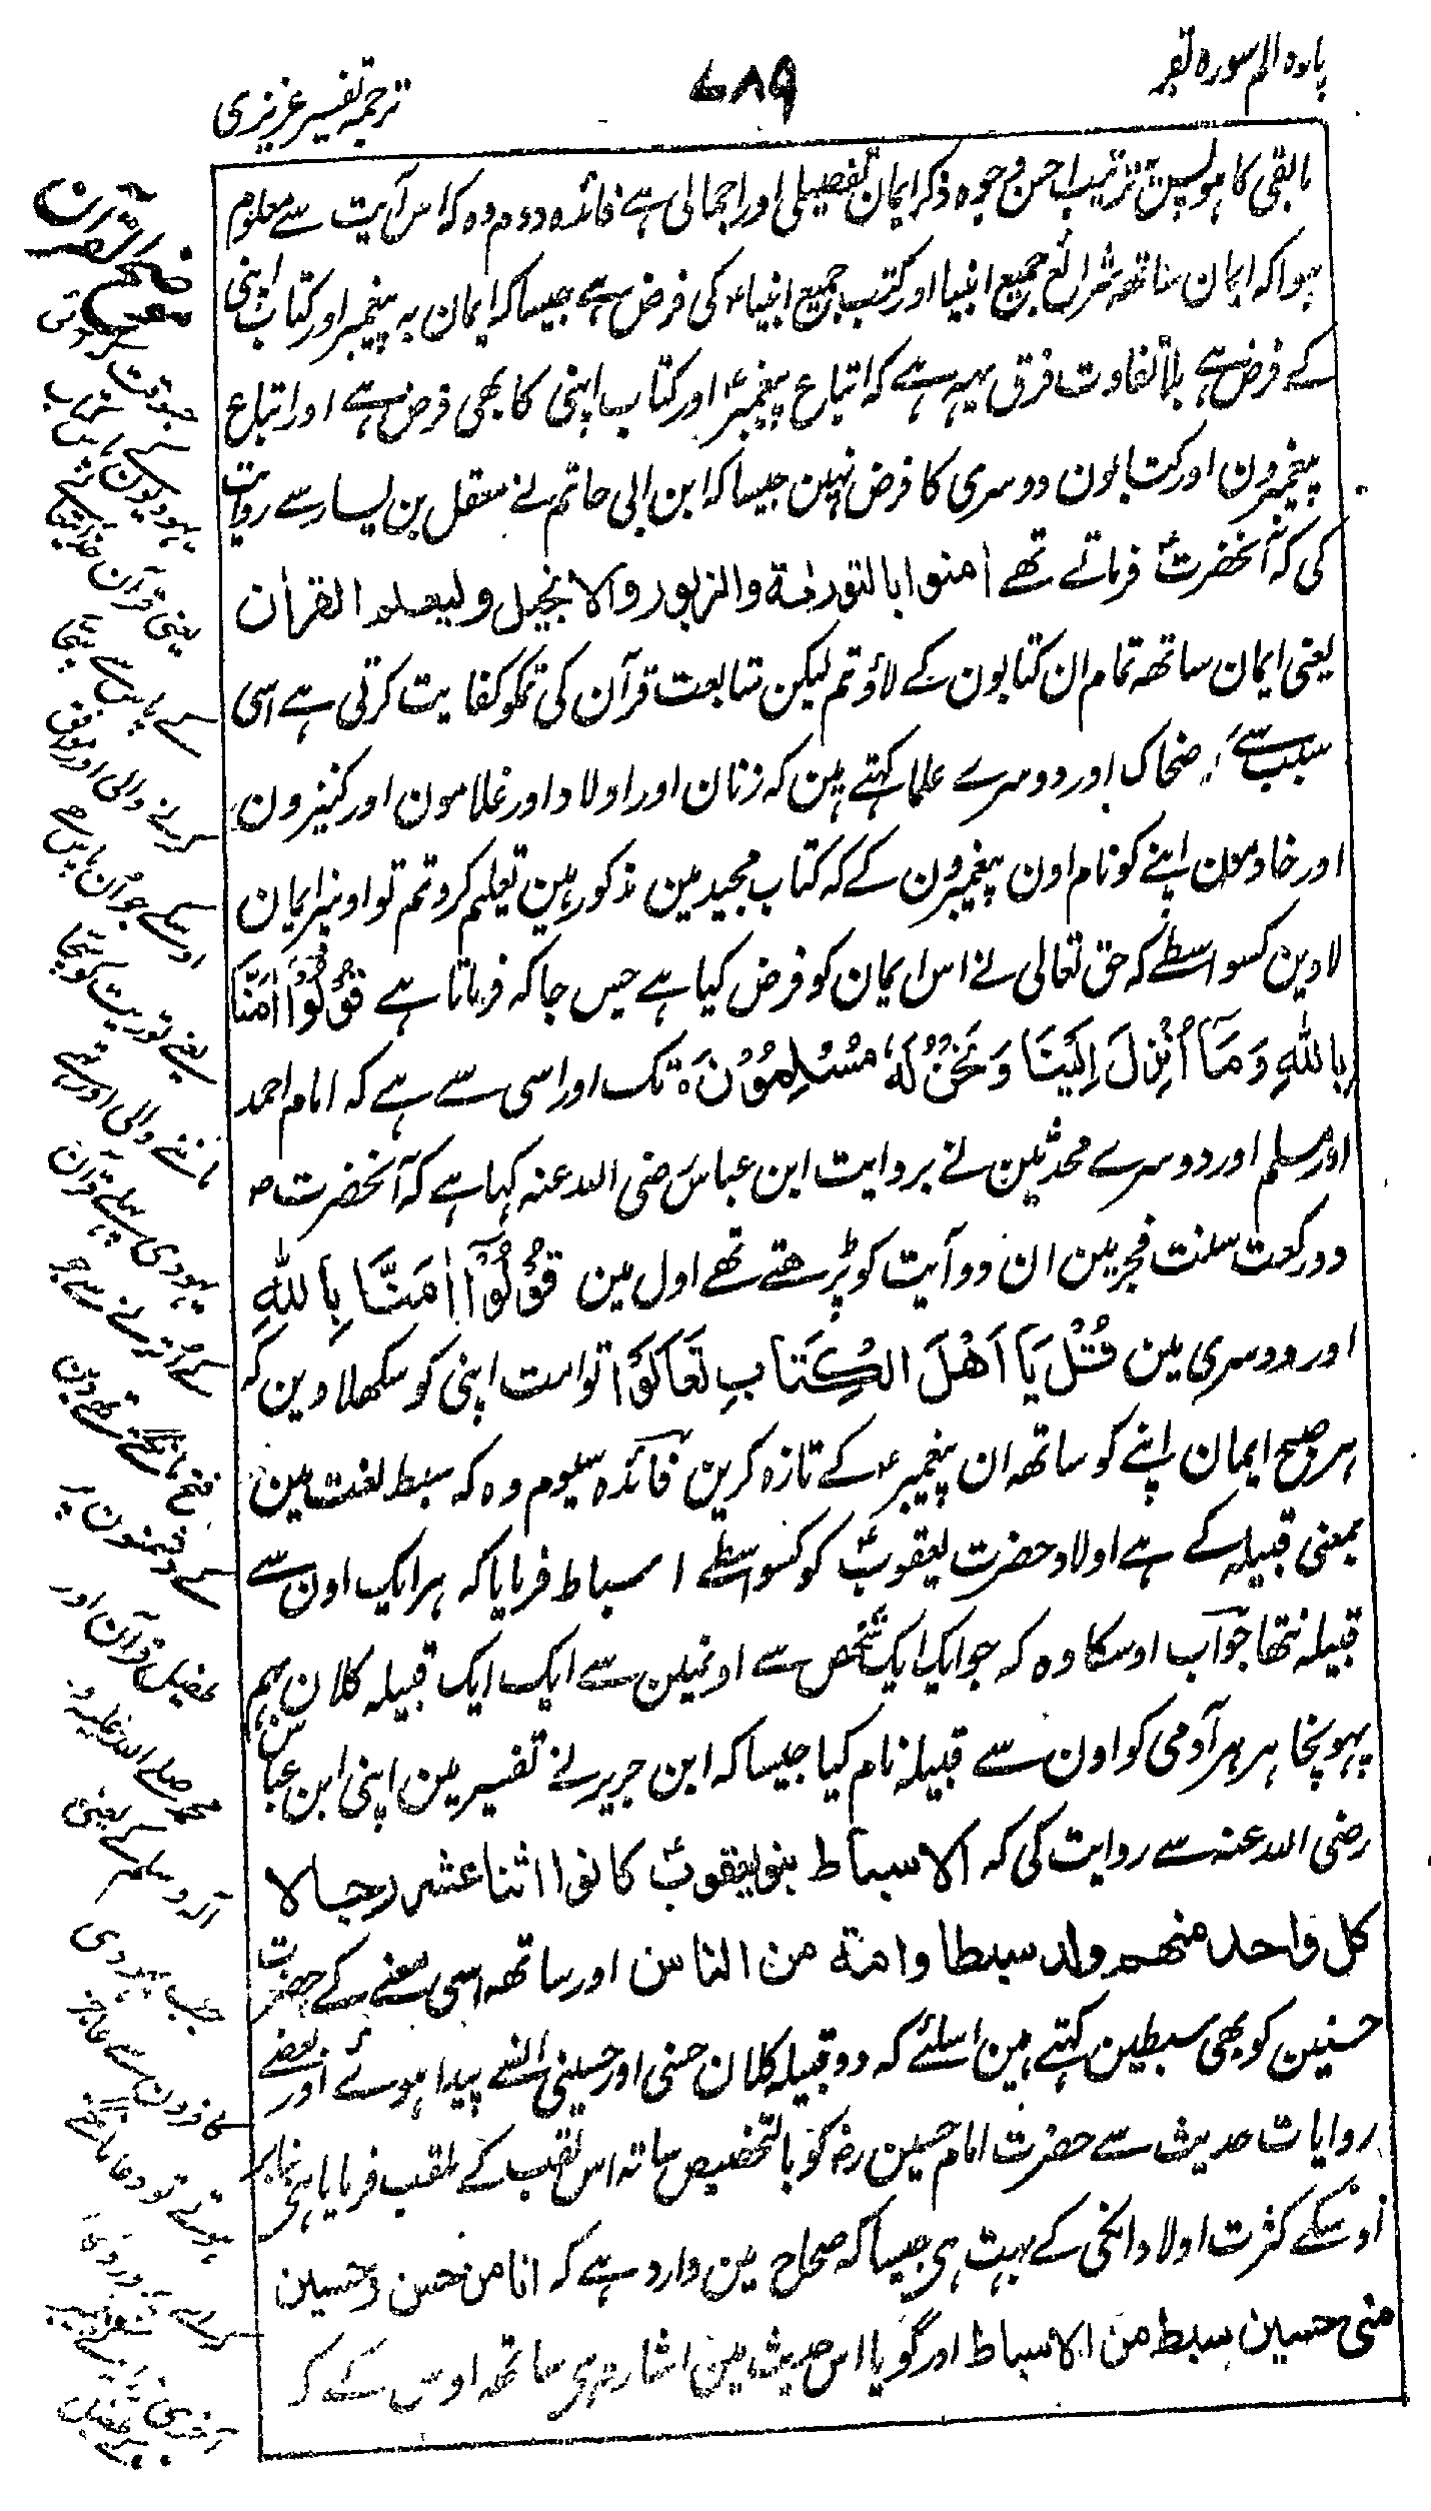 پاره الم سوره بقر
۷۸۹
ترجمہ تفسیر عزیزی
بالقی کا ہو پس یہ ترتیب احسن وجوہ ذکر ایمان تفصیلی اور اجمالی ہے فائدہ دوم وہ کہ اس آیت سے معلوم
ہوا کہ ایمان ساتھ شرائع جمیع انبیا اور کتب جمیع انبیاء کی فرض ہے جیسا کہ ایمان بہ پیغمبر اور کتاب اپنی
کے فرض ہے بلا تفاوت فرق یہہ ہے کہ اتباع پیغمبرؐ اور کتاب اپنی کا بھی فرض ہے اور اتباع
پیغمبرون اور کتابون دوسری کا فرض نہین جیسا کہ ابن ابی حاتم نے معقل بن یسار سے روایت
کی کہ آنحضرتؐ فرماتے تھے اٰمنوا بالتورٰىة والزبور والانجیل ولیعلم القراٰن
یعنی ایمان ساتھ تمام ان کتابون کے لاؤ تم لیکن متابعت قرآن کی تمکو کفایت کرتی ہے اسی
سبب سے ضحاک اور دوسرے علما کہتے ہین کہ زنان اور اولاد اور غلامون اور کنیزون
اور خادمون اپنے کو نام اون پیغمبرون کے کہ کتاب مجید مین مذکور ہین تعلیم کرو تم تو اونپر ایمان
لاوین کسواسطے کہ حق تعالی نے اس ایمان کو فرض کیا ہے جس جا کہ فرماتا ہے قُوْلُوْٓا اٰمَنَّا
بِاللّٰهِ وَمَآ اُنْزِلَ اِلَیْنَا وَنَحْنُ لَهٗ مُسْلِمُوْنَ ۃ تک اور اسی سے ہے کہ امام احمد
اور مسلم اور دوسرے محدثین نے بروایت ابن عباس رضی اللہ عنہ کہا ہے کہ آنحضرت ص
دو رکعت سنت فجر مین ان دو آیت کو پڑھتے تھے اول مین قُوْلُوْٓا اٰمَنَّا بِاللّٰهِ
اور دوسری مین قُلْ یَا اَهْلَ الْكِتَابِ تَعَالَوْا تو امت اپنی کو سکھلاوین کہ
ہر صبح ایمان اپنے کو ساتھ ان پیغمبرؑ کے تازہ کرین فائدہ سیوم وہ کہ سبط لغت مین
بمعنی قبیلہ کے ہے اولاد حضرت یعقوبؑ کو کسواسطے اسباط فرمایا کہ ہر ایک اون سے
قبیلہ نتھا جواب اوسکا وہ کہ جو ایک ایک شخص سے اونمین سے ایک ایک قبیلہ کلان بہم
پہونچا ہر ہر آدمی کو اون سے قبیلہ نام کیا جیسا کہ ابن جریر نے تفسیر مین اپنی ابن عباس
رضی اللہ عنہ سے روایت کی کہ الاسباط بنو یعقوبؑ کانوا اثنا عشر رجالا
كل واحد منهم ولد سبطا وامة من الناس اور ساتھ اسی معنے کے حضرت
حسنین کو بھی سبطین کہتے ہین اسلئے کہ دو قبیلہ کلان حسنی اور حسینی ان سے پیدا ہوے اور بعضے
روایات حدیث سے حضرت امام حسین رض کو بالتخصیص ساتھ اس لقب کے ملقب فرمایا ہی بنابر
اوسکے کثرت اولاد انکی کے بہت ہی جیسا کہ صحاح مین وارد ہے کہ انا من حسین وحسین
منی حسین سبط من الاسباط اور گویا اس حدیث مین اشارہ ہی ساتھ اوس کے کہ
یہودیون
یعنی قرآن
والی اور موافق
توریت کو سچا
یہودی پہلے قرآن
کے اترنے سے
فتح مانگتے تھے دین
کے دشمنون پر
بطفیل قرآن اور
محمد صلے اللہ علیہ و
آلہ و سلم کے یعنی
جب یہودی
کافرون سے عاجز
ہوتے تو دعا مانگتے